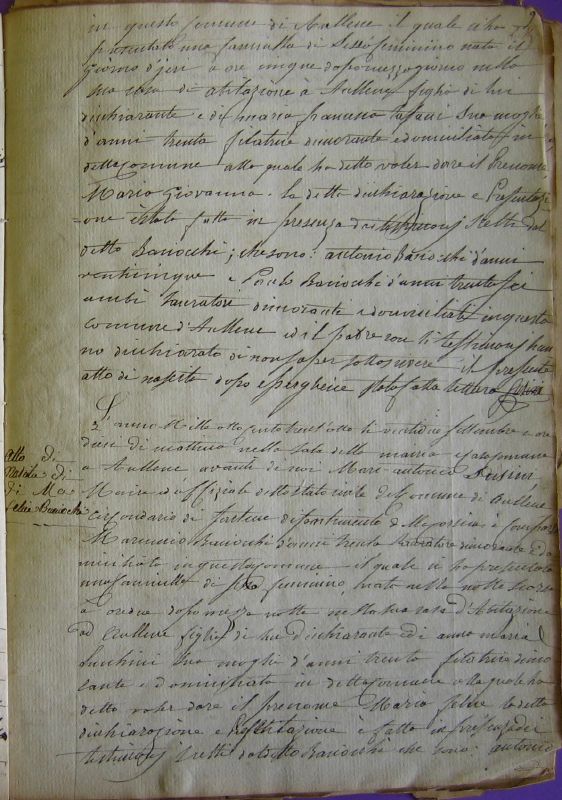 in questo comune di Aullene il quale ci ha
presentato una fanciulla di sesso feminino nata il
giorno d'jeri a ore cinque dopo mezzo giorno nella
sua casa di abitazione a Aullene figlia di lui
dichiarante e di maria francesca sua moglie
d'anni trenta filatrice dimorante e domiciliata in
detta Comune alla quale ha detto voler dare il Prenome
Maria Giovanna. la detta dichiarazione e Presentazi
one è stata fatta in presenza dei testimonj scelti dal
detto Baciocchi; che sono: antonio Baciocchi d'anni
venticinque e Baciocchi d'anni trentasei
ambi lavoratore dimoranti e domiciliati in questa
comune d'Aullene ed il padre con li testimonj han
no dichiarato di non saper sottoscrivere il presente
atto di nascita dopo essergliene stato fatta lettura
L'anno Mille otto cento trent'otto li ventidue settembre a ore
dieci di mattina nella sala della mairia casa comune
a Aullene avanti di noi Marc antonio
Atto di
nascita di
di Ma
felice Baciocchi
Maire ed offiziale dello stato civile del Comune di Aullene
circondario di Sartene dipartimento della Corsica è comparso
Baciocchi d'anni trenta lavoratore dimorante e do
miciliato in questa comune il quale ci ha presentato
una fanciulla di sesso feminino, nata nella notte scorsa
a ore due dopo mezza notte nella sua casa d'Abitazione
ad Aullene figlia di lui dichiarante e di anna maria
Lucchini sua moglie d'anni trenta filatrice dimo
rante e domiciliata in detta comune alla quale ha
detto voler dare il prenome Maria felice la detta
dichiarazione e presentazione è fatta in presenza dei
testimonj scelti dal detto Baciocchi che sono: antonio